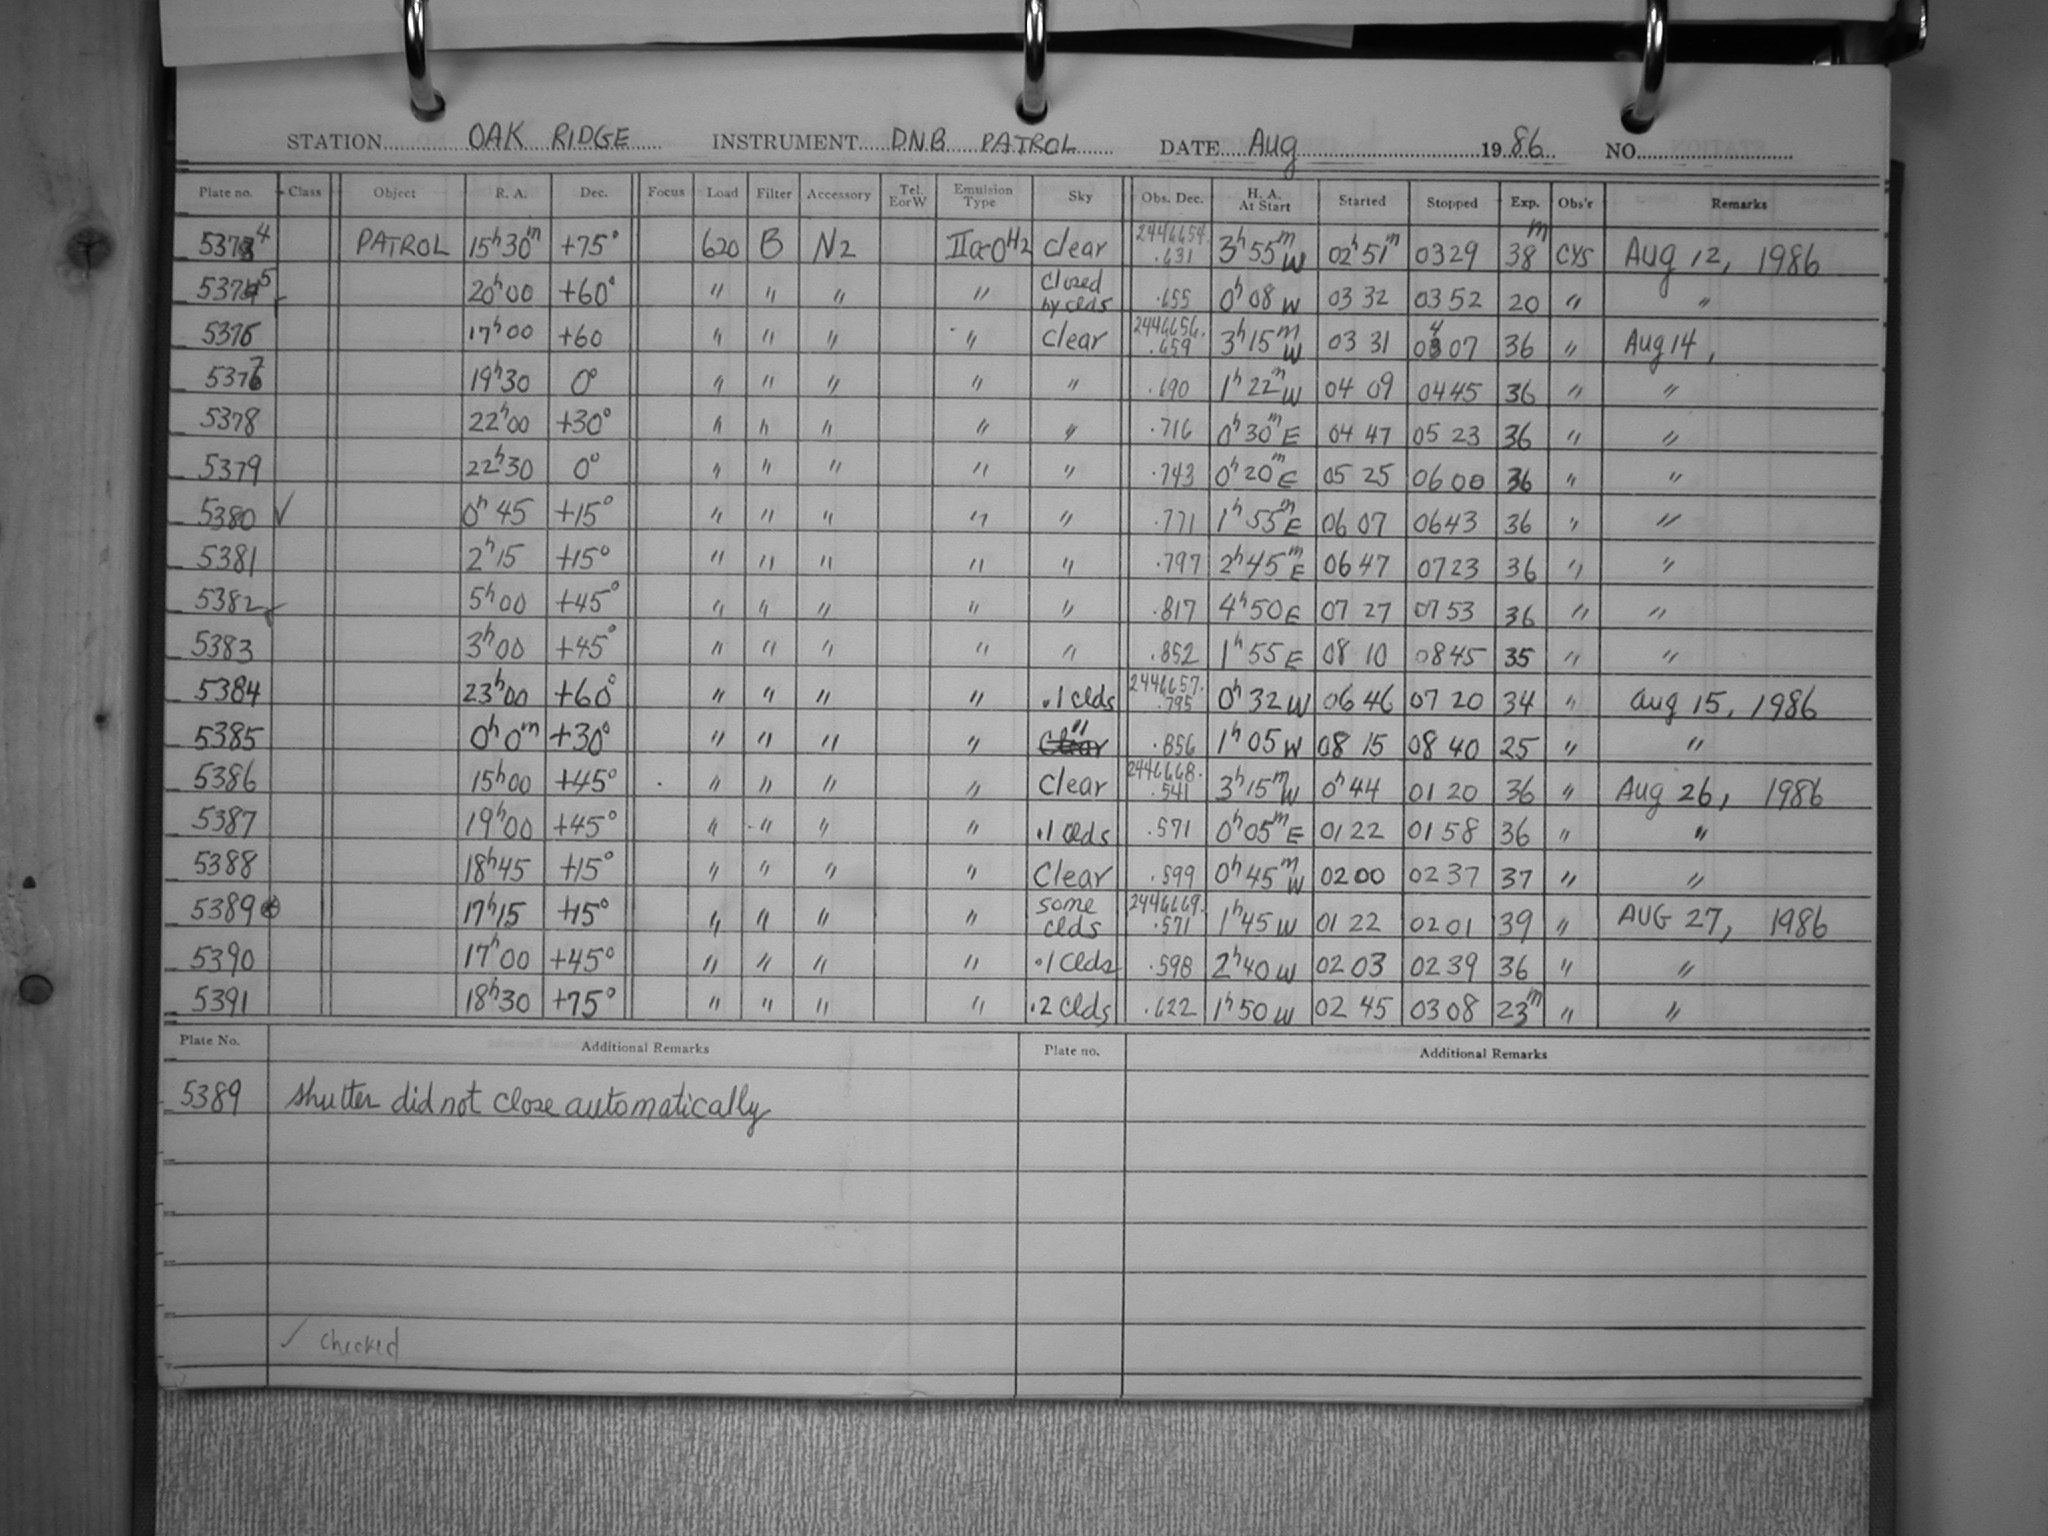 STATION OAK RIDGE INSTRUMENT DNB PATROL DATE Aug 1986 NO.
Plate no. Class Object R. A. Dec. Focus Load Filter Accessory Tel. E or W Emulsion Type Sky Obs. Dec. H. A. At Start Started Stopped Exp. Obs'r Remarks
5374 PATROL 15h30m +75° 620 B N2 IIaO H2 clear 2446654.631 3h55m W 02h51m 0329 38m CYS Aug 12, 1986
5375 20h00 +60° " " " " Closed by clds .655 0h08 W 03 32 03 52 20 " "
5376 17h00 +60 " " " " clear 2446656.659 3h15m W 03 31 0407 36 " Aug 14,
5377 19h30 0° " " " " " .690 1h22m W 04 09 0445 36 " "
5378 22h00 +30° " " " " " .716 0h30m E 04 47 05 23 36 " "
5379 22h30 0° " " " " " .743 0h20m E 05 25 06 00 36 " "
5380 ✓ 0h45 +15° " " " " " .771 1h55m E 06 07 0643 36 " "
5381 2h15 +15° " " " " " .797 2h45m E 06 47 0723 36 " "
5382 ✓ 5h00 +45° " " " " " .817 4h50 E 07 27 07 53 36 " "
5383 3h00 +45° " " " " " .852 1h55 E 08 10 0845 35 " "
5384 23h00 +60° " " " " .1 clds 2446657.795 0h32 W 06 46 07 20 34 " Aug 15, 1986
5385 0h0m +30° " " " " " .856 1h05 W 08 15 08 40 25 " "
5386 15h00 +45° " " " " Clear 2446668.541 3h15m W 0h44 01 20 36 " Aug 26, 1986
5387 19h00 +45° " " " " .1 clds .571 0h05m E 01 22 01 58 36 " "
5388 18h45 +15° " " " " Clear .599 0h45m W 02 00 02 37 37 " "
5389 17h15 +15° " " " " some clds 2446669.571 1h45 W 01 22 02 01 39 " AUG 27, 1986
5390 17h00 +45° " " " " .1 clds .598 2h40 W 02 03 02 39 36 " "
5391 18h30 +75° " " " " .2 clds .622 1h50 W 02 45 03 08 23m " "
Plate No. Additional Remarks Plate no. Additional Remarks
5389 shutter did not close automatically
✓ checked